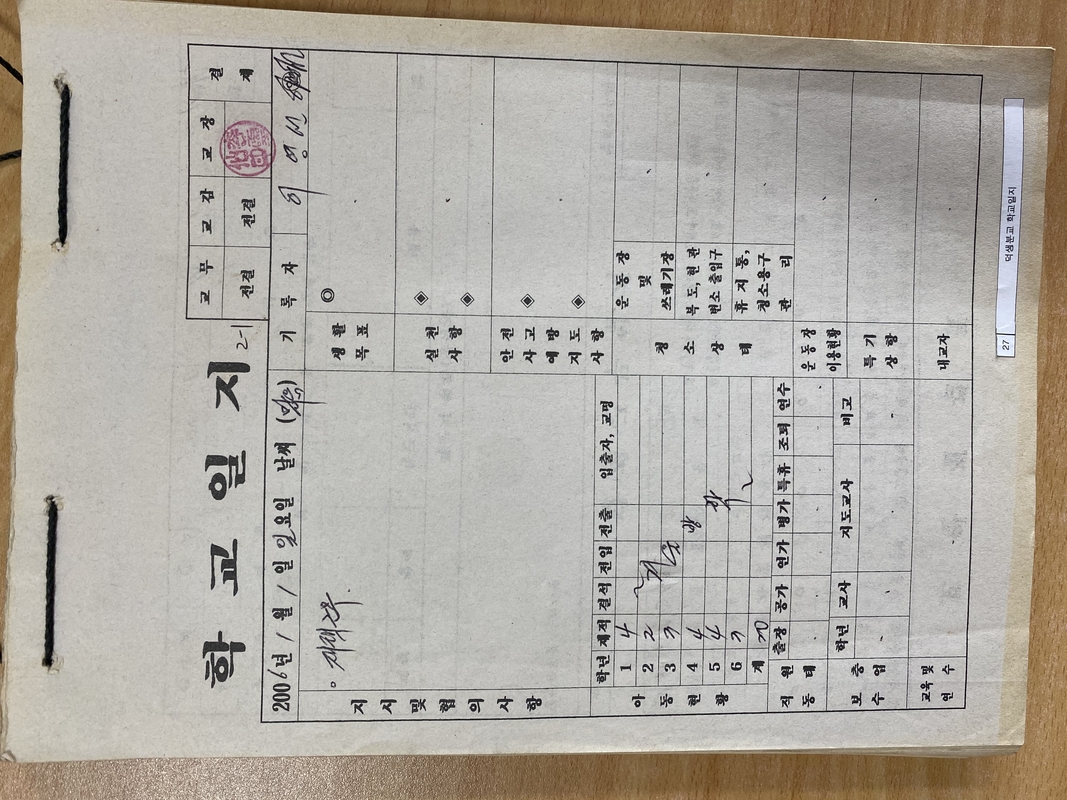 학교일지
2-1
교무 교감 교장 결재
전결 전결
2006년 1월 1일 일요일 날씨 (맑음) 기록자 이영선
지시 및 협의사항
。재택근무.
생활목표 ◎
실천사항 ◈ ◈
안전사고예방지도사항 ◈ ◈
아동현황
학년 재적 결석 전입 전출 입출자, 교명
1 4
2 2
3 3
4 4
5 4
6 3
계 20
~겨울 방학~
청소상태
운동장 및 쓰레기장
복도, 현관 변소 출입구
휴지통, 청소용구 관리
직원동태
출장 공가 연가 병가 특휴 조퇴 연수
운동장 이용현황
보충수업
학년 교사 지도교사 비고
특기상황
교육 및 연수
내교자
27 덕생분교 학교일지